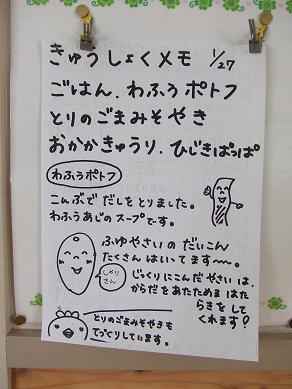 きゅうしょくメモ 1/27
ごはん、わふうポトフ
とりのごまみそやき
おかかきゅうり、ひじきぱっぱ
わふうポトフ
こんぶで だしをとりました。
わふうあじの スープです。
ふゆやさいの だいこん
たくさん はいってます〜。
しゃりさん
じっくりにこんだ やさいは、
からだを あたためる はた
らきを して
くれます!
とりのごまみそやきも
てづくりしています。